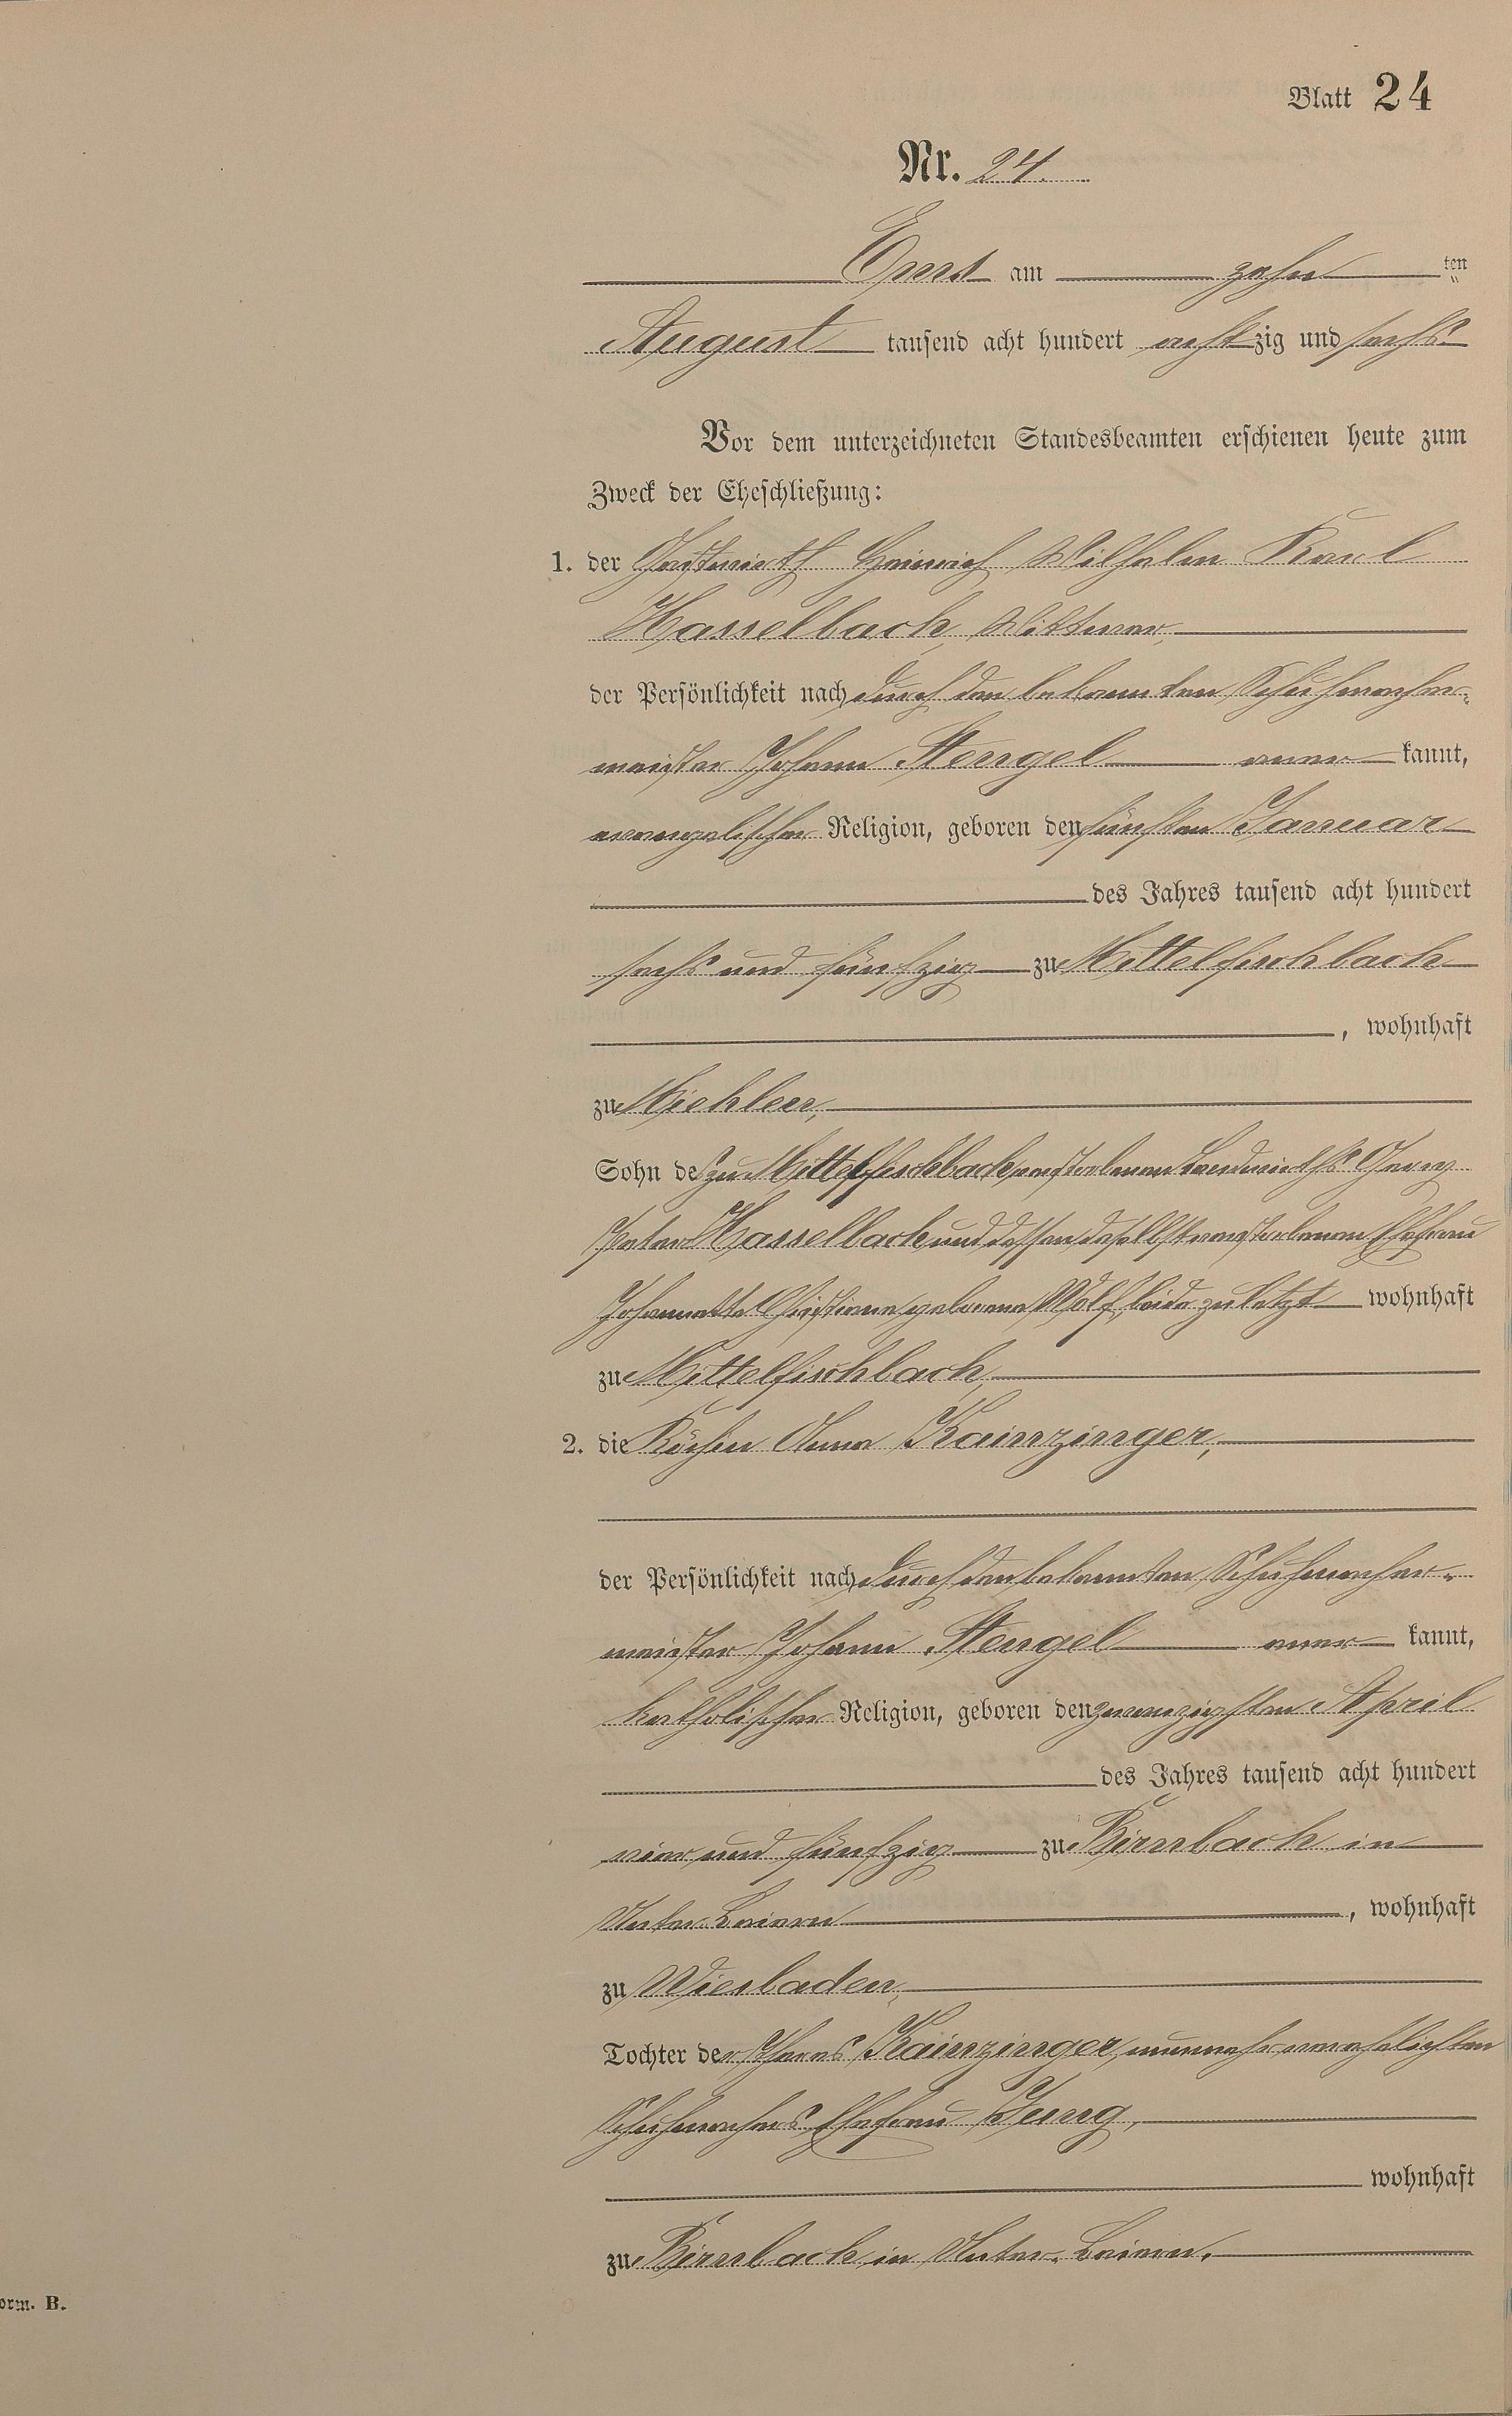 Blatt 24
Nr. 24.
Ems am zehn ten
August tausend acht hundert achtzig und sechs
Vor dem unterzeichneten Standesbeamten erschienen heute zum
Zweck der Eheschließung:
1. der Gastwirth Heinrich Wilhelm Karl
Hasselbach, Wittwer,
der Persönlichkeit nach durch den bekannten Schuhmacher-
meister Johann Stengel aner kannt,
evangelischer Religion, geboren den fünften Januar
des Jahres tausend acht hundert
sechs und fünfzig zu Mittelfischbach
, wohnhaft
zu Miehlen,
Sohn des zu Mittelfischbach verstorbenen Landwirths Georg
Peter Hasselbach und dessen daselbst verstorbenen Ehefrau
Johannette Christiane geborene Wolf, beide zuletzt wohnhaft
zu Mittelfischbach,
2. die Köchin Anna Kainzinger,
der Persönlichkeit nach durch den bekannten Schuhmacher-
meister Johann Stengel aner kannt,
katholischer Religion, geboren den zwanzigsten April
des Jahres tausend acht hundert
vier und fünfzig zu Birnbach in
Unter-Baiern, wohnhaft
zu Wiesbaden,
Tochter der Kainzinger, nunmehr verehelichten
Schuhmachers Ehefrau Jung,
wohnhaft
zu Birnbach in Unter-Baiern.
orm. B.